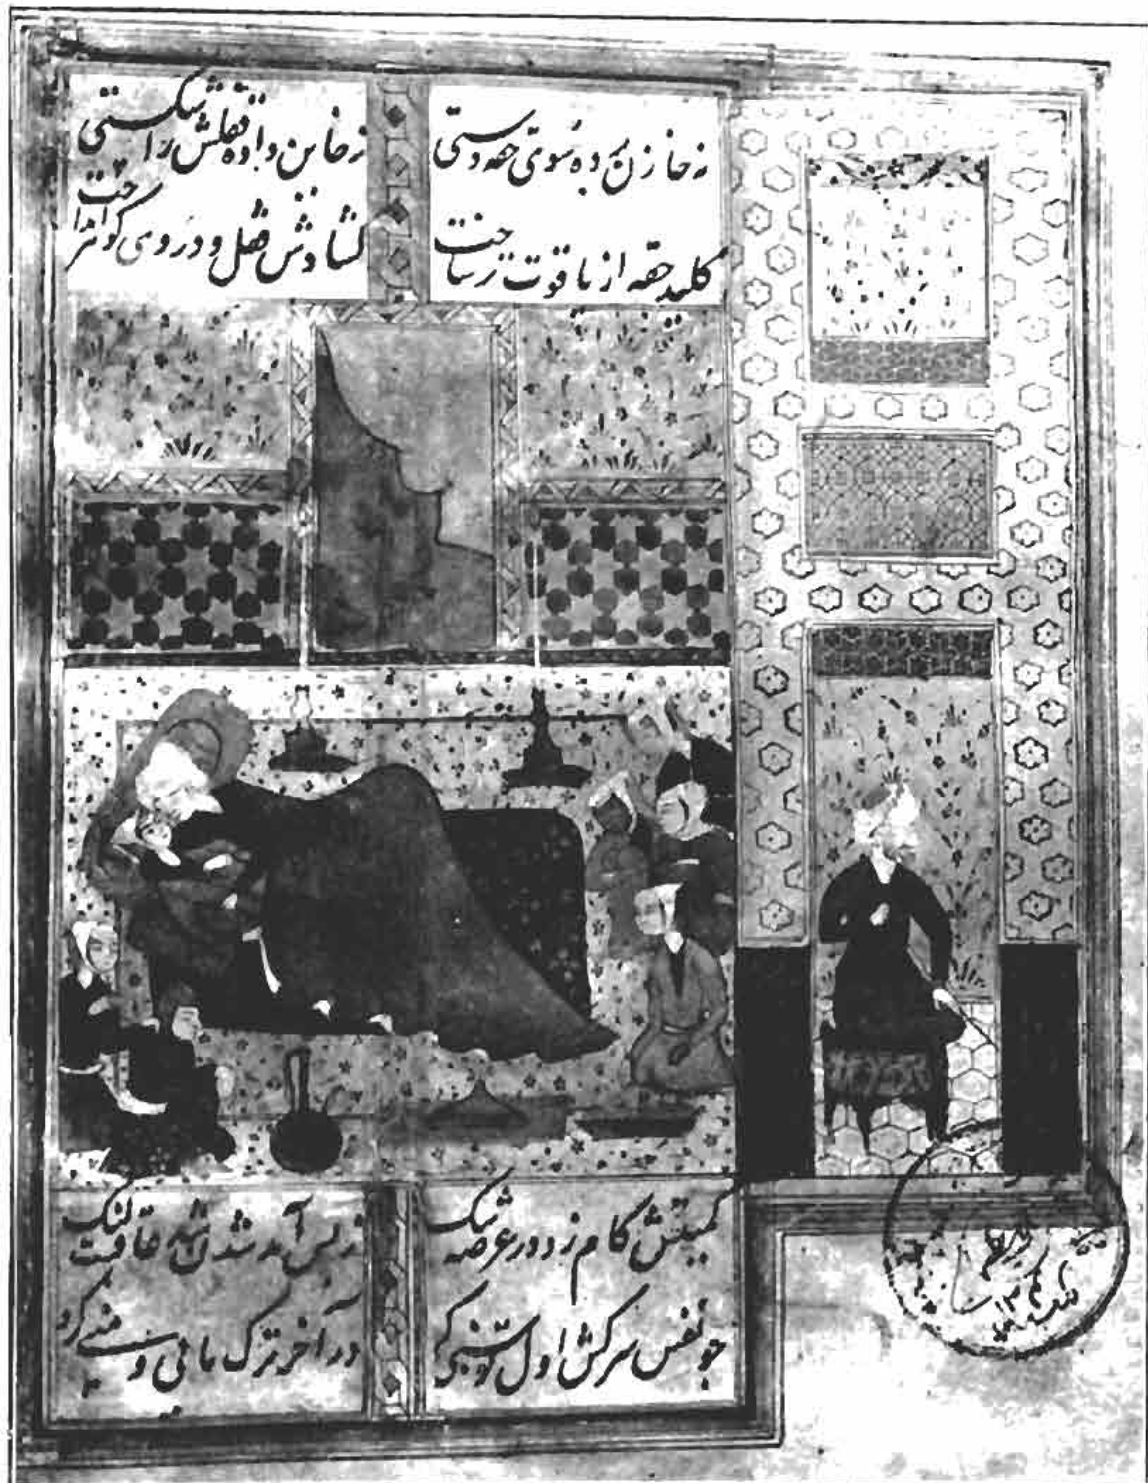 نه خازن برده سوی حقه دستی
نه خاین داده قفلش را شکستی
کلید حقه از یاقوت تر ساخت
کشادش قفل و در وی کوهر انداخت
کمیتش کام زد در عرصه تنک
ز بس آمد شدن شد عاقبت لنک
چو نفس سرکش اول توسنی کرد
در آخر ترک مایی و منی کرد